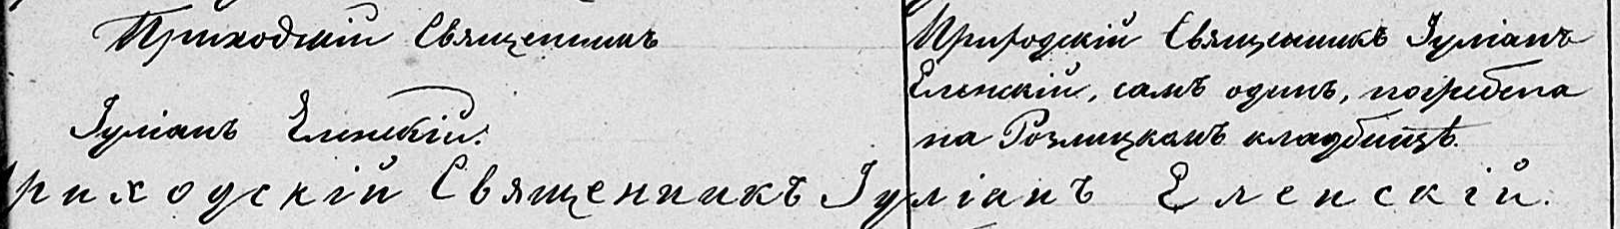 Приходскій Священникъ
Іуліанъ Еленскій.
Приходскій Священникъ Іуліанъ
Еленскій, самъ одинъ, погребена
на Розлицкомъ кладбищѣ.
Приходскій Священникъ Іуліанъ Еленскій.